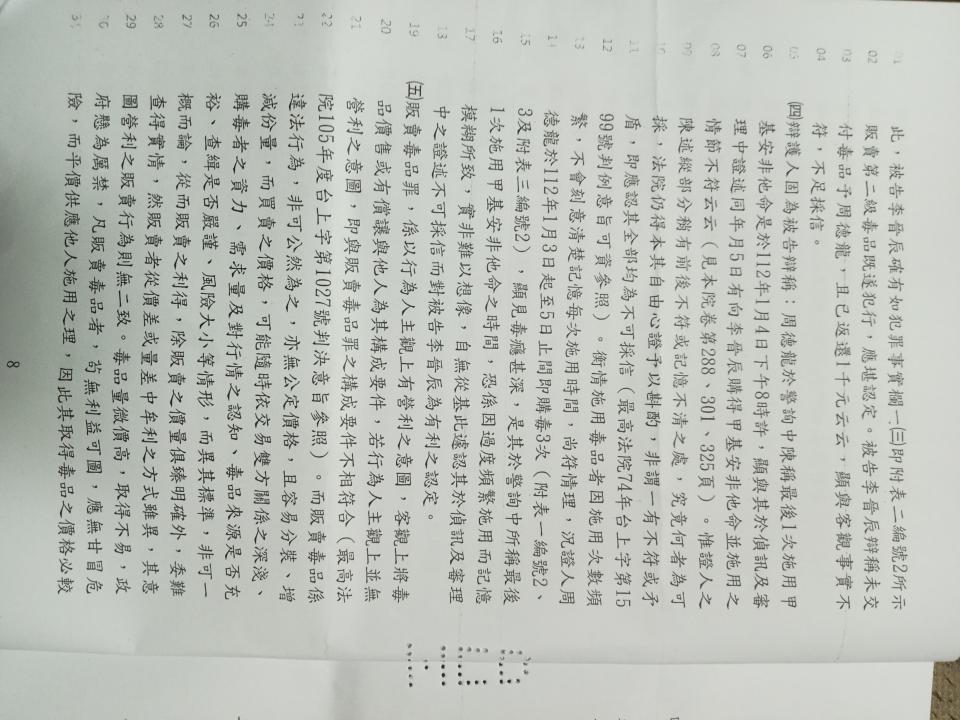 01 此，被告李晉辰確有如犯罪事實欄一㈢即附表二編號2所示
02 販賣第二級毒品既遂犯行，應堪認定。被告李晉辰辯稱未交
03 付毒品予周德龍，且已返還1千元云云，顯與客觀事實不
04 符，不足採信。
05 ㈣辯護人固為被告辯稱：周德龍於警詢中陳稱最後1次施用甲
06 基安非他命是於112年1月4日下午8時許，顯與其於偵訊及審
07 理中證述同年月5日有向李晉辰購得甲基安非他命並施用之
08 情節不符云云（見本院卷第288、301、325頁）。惟證人之
09 陳述縱部分稍有前後不符或記憶不清之處，究竟何者為可
10 採，法院仍得本其自由心證予以斟酌，非謂一有不符或矛
11 盾，即應認其全部均為不可採信（最高法院74年台上字第15
12 99號判例意旨可資參照）。衡情施用毒品者因施用次數頻
13 繁，不會刻意清楚記憶每次施用時間，尚符情理，況證人周
14 德龍於112年1月3日起至5日止間即購毒3次（附表一編號2、
15 3及附表三編號2），顯見毒癮甚深，是其於警詢中所稱最後
16 1次施用甲基安非他命之時間，恐係因過度頻繁施用而記憶
17 模糊所致，實非難以想像，自無從基此遽認其於偵訊及審理
18 中之證述不可採信而對被告李晉辰為有利之認定。
19 ㈤販賣毒品罪，係以行為人主觀上有營利之意圖，客觀上將毒
20 品價售或有償讓與他人為其構成要件，若行為人主觀上並無
21 營利之意圖，即與販賣毒品罪之構成要件不相符合（最高法
22 院105年度台上字第1027號判決意旨參照）。而販賣毒品係
23 違法行為，非可公然為之，亦無公定價格，且容易分裝、增
24 減份量，而買賣之價格，可能隨時依交易雙方關係之深淺、
25 購毒者之資力、需求量及對行情之認知、毒品來源是否充
26 裕、查緝是否嚴謹、風險大小等情形，而異其標準，非可一
27 概而論，從而販賣之利得，除販賣之價量俱臻明確外，委難
28 查得實情，然販賣者從價差或量差中牟利之方式雖異，其意
29 圖營利之販賣行為則無二致。毒品量微價高，取得不易，政
30 府懸為厲禁，凡販賣毒品者，苟無利益可圖，應無甘冒危
31 險，而平價供應他人施用之理，因此其取得毒品之價格必較
8